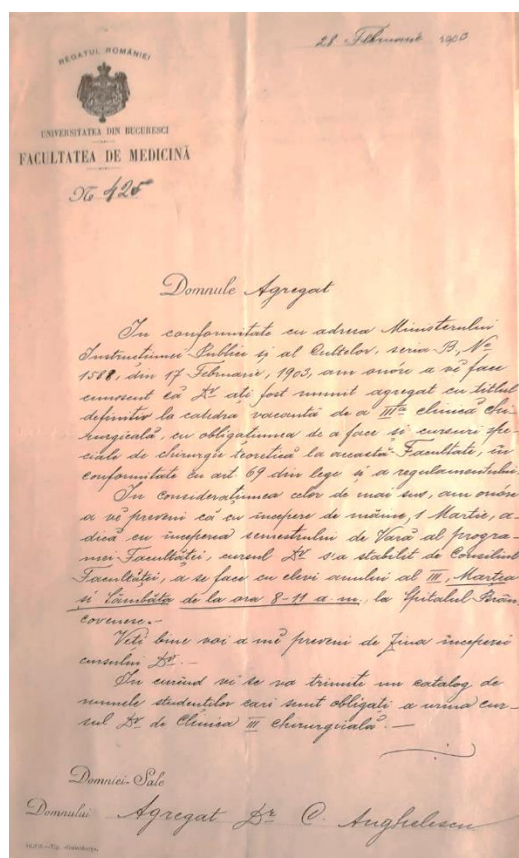 28 Februarie 1903
REGATUL ROMÂNIEI
UNIVERSITATEA DIN BUCURESCI
FACULTATEA DE MEDICINĂ
No 425
Domnule Agregat
In conformitate cu adresa Ministerului
Instrucțiunei Publice și al Cultelor, seria B, No
1588, din 17 Februarie, 1903, am onore a vĕ face
cunoscut că Dv ați fost numit agregat cu titlul
definitiv la catedra vacantă de a IIIa clinică chi-
rurgicală, cu obligațiunea de a face și cursuri spe-
ciale de chirurgie teoretică la această Facultate, în
conformitate cu art. 69 din lege și a regulamentului.
In considerațiunea celor de mai sus, am onóre
a vĕ preveni că cu începere de mâine, 1 Martie, a-
dică cu începerea semestrului de Vară al progra-
mei Facultăței, cursul Dv s'a stabilit de Consiliul
Facultăței, a se face cu elevi anului al III, Martea
și Sâmbăta de la ora 8-11 a.m. la Spitalul Brân-
covenesc.-
Veți bine voi a mĕ preveni de ziua începerei
cursului Dv.-
In curînd vi se va trimite un catalog de
numele studenților cari sunt obligați a urma cur-
sul Dv de Clinica III chirurgicală.-
Domniei-Sale
Domnului Agregat Dr C. Anghelescu